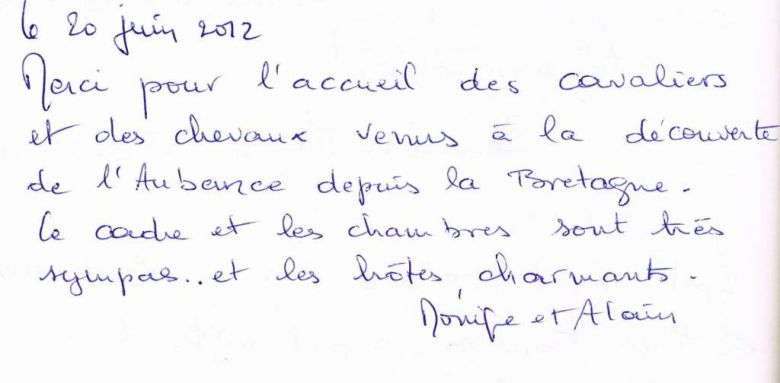 le 20 juin 2012
Merci pour l'accueil des cavaliers
et des chevaux venus à la découverte
de l'Aubance depuis la Bretagne.
Le cadre et les chambres sont très
sympas.. et les hôtes, charmants.
et Alain